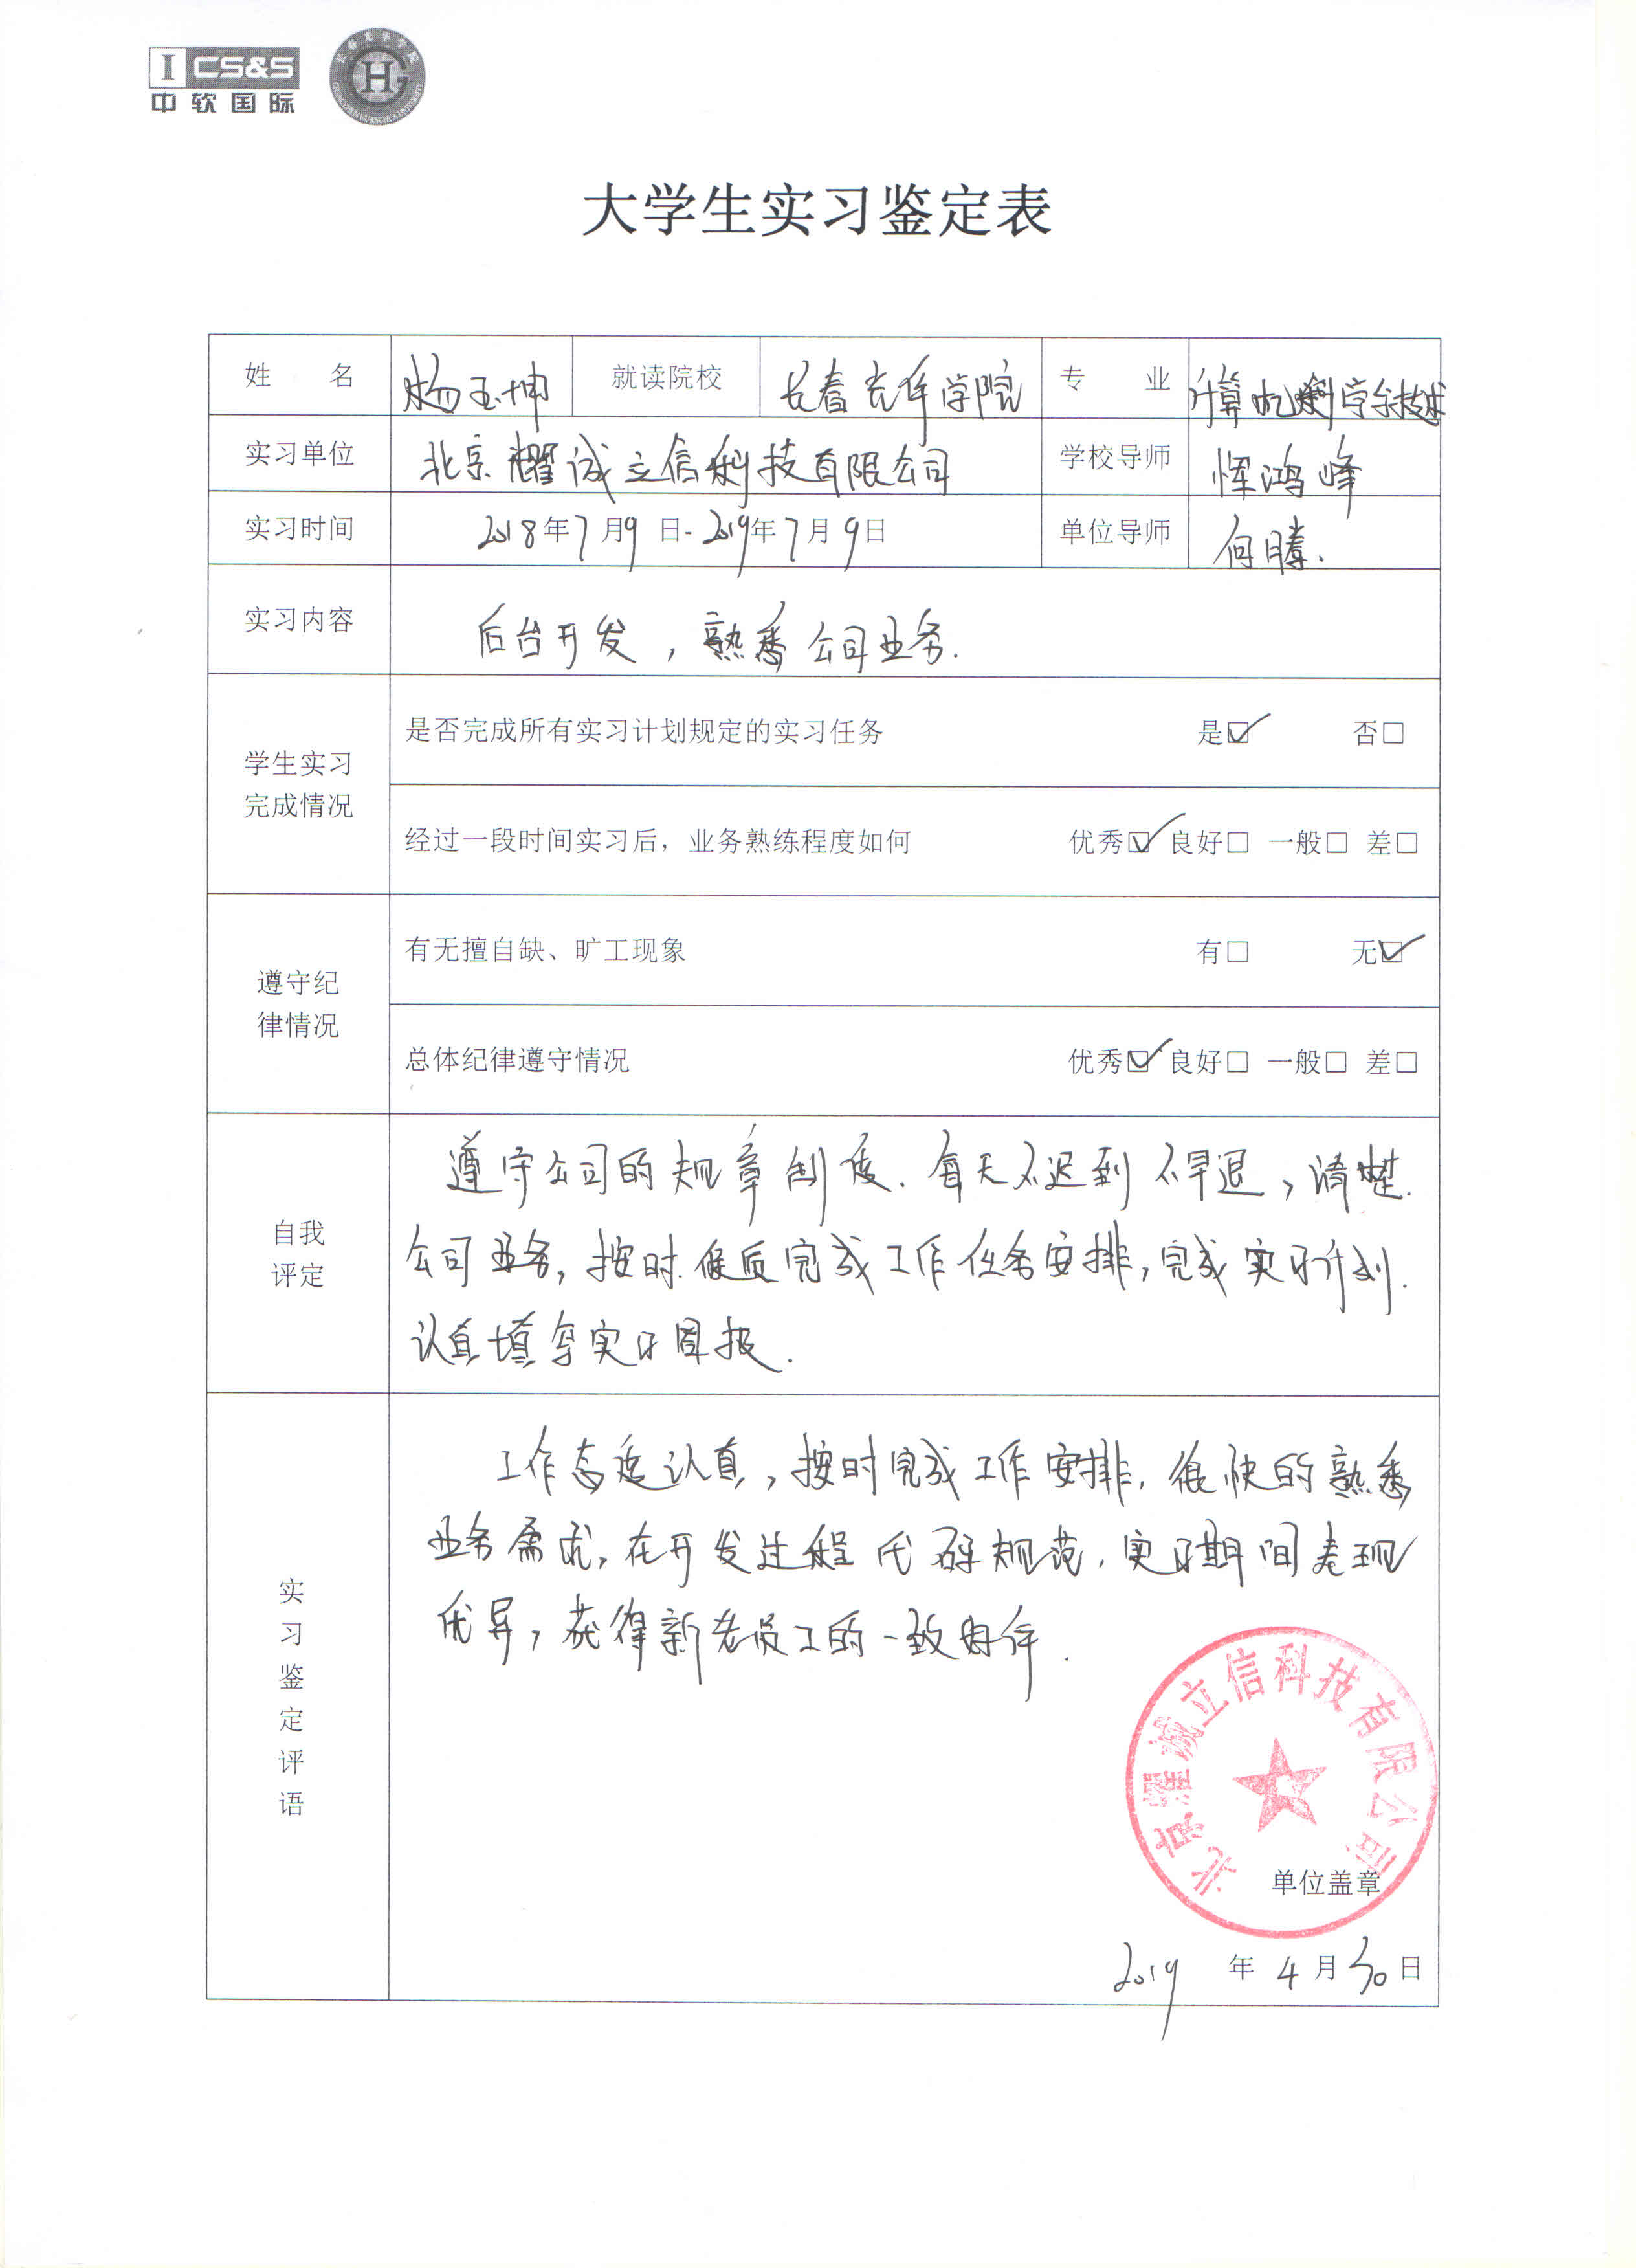 I CS&S
中软国际
长春光华学院
CHANGCHUN GUANGHUA UNIVERSITY
大学生实习鉴定表
姓 名 杨玉坤 就读院校 长春光华学院 专 业 计算机科学与技术
实习单位 北京耀诚立信科技有限公司 学校导师 恽鸿峰
实习时间 2018年7月9日-2019年7月9日 单位导师 何腾.
实习内容 后台开发,熟悉公司业务.
学生实习
完成情况
是否完成所有实习计划规定的实习任务 是☑ 否□
经过一段时间实习后,业务熟练程度如何 优秀☑ 良好□ 一般□ 差□
遵守纪
律情况
有无擅自缺、旷工现象 有□ 无☑
总体纪律遵守情况 优秀☑ 良好□ 一般□ 差□
自我
评定
遵守公司的规章制度.每天不迟到不早退,清楚.
公司业务,按时.保质完成工作任务安排,完成实习计划.
认真填写实习周报.
实
习
鉴
定
评
语
工作态度认真,按时完成工作安排.很快的熟悉
业务需求,在开发过程代码规范.实习期间表现
优异,获得新老员工的一致好评.
北京耀诚立信科技有限公司
单位盖章
2019 年 4 月 30 日